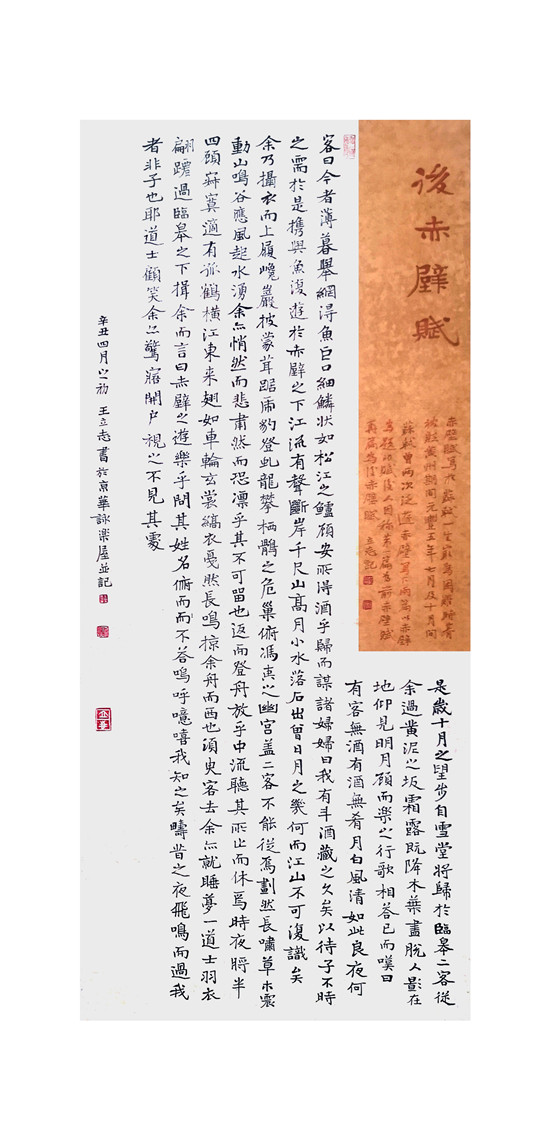 後赤壁賦
赤壁賦爲蘇軾一生最爲困難時著
坡貶黃州期間元豐五年七月及十月間
蘇軾曾兩次泛遊赤壁寫下兩篇以赤壁
爲題的賦後人因稱第一篇爲前赤壁賦
第二篇爲後赤壁賦 立志記
是歲十月之望步自雪堂將歸於臨皋二客從
余過黃泥之坂霜露既降木葉盡脫人影在
地仰見明月顧而樂之行歌相答已而嘆曰
有客無酒有酒無肴月白風清如此良夜何
客曰今者薄暮舉網得魚巨口細鱗狀如松江之鱸顧安所得酒乎歸而謀諸婦婦曰我有斗酒藏之久矣以待子不時
之需於是攜與魚復遊於赤壁之下江流有聲斷岸千尺山高月小水落石出曾日月之幾何而江山不可復識矣
余乃攝衣而上履巉巖披蒙茸踞虎豹登虬龍攀栖鶻之危巢俯馮夷之幽宮蓋二客不能從焉劃然長嘯草木震
動山鳴谷應風起水湧余亦悄然而悲肅然而恐凜乎其不可留也返而登舟放乎中流聽其所止而休焉時夜將半
四顧寂寞適有孤鶴橫江東來翅如車輪玄裳縞衣戛然長鳴掠余舟而西也須臾客去余亦就睡夢一道士羽衣
翩躚過臨皋之下揖余而言曰赤壁之遊樂乎問其姓名俯而而不答嗚呼噫嘻我知之矣疇昔之夜飛鳴而過我
者非子也耶道士顧笑余亦驚寤開戶視之不見其處
辛丑四月之初 王立志書於京華詠樂屋並記